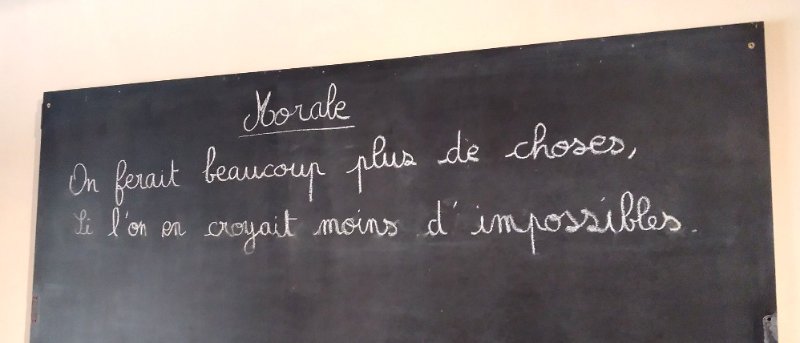 Morale
On ferait beaucoup plus de choses,
Si l'on en croyait moins d'impossibles.